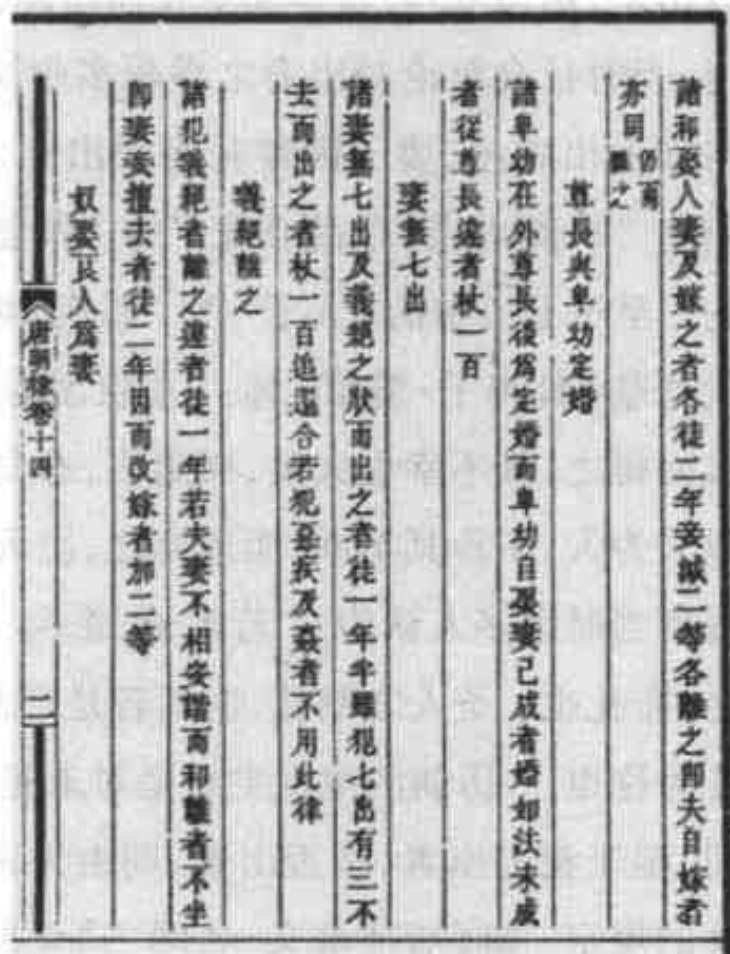 諸和娶人妻及嫁之者各徒二年妾減二等各離之即夫自嫁者
亦同仍兩離之
尊長與卑幼定婚
諸卑幼在外尊長後爲定婚而卑幼自娶妻已成者婚如法未成
者從尊長違者杖一百
妻無七出
諸妻無七出及義絕之狀而出之者徒一年半雖犯七出有三不
去而出之者杖一百追還合若犯惡疾及姦者不用此律
義絕離之
諸犯義絕者離之違者徒一年若夫妻不相安諧而和離者不坐
即妻妾擅去者徒二年因而改嫁者加二等
奴娶良人爲妻
唐明律卷十四
二